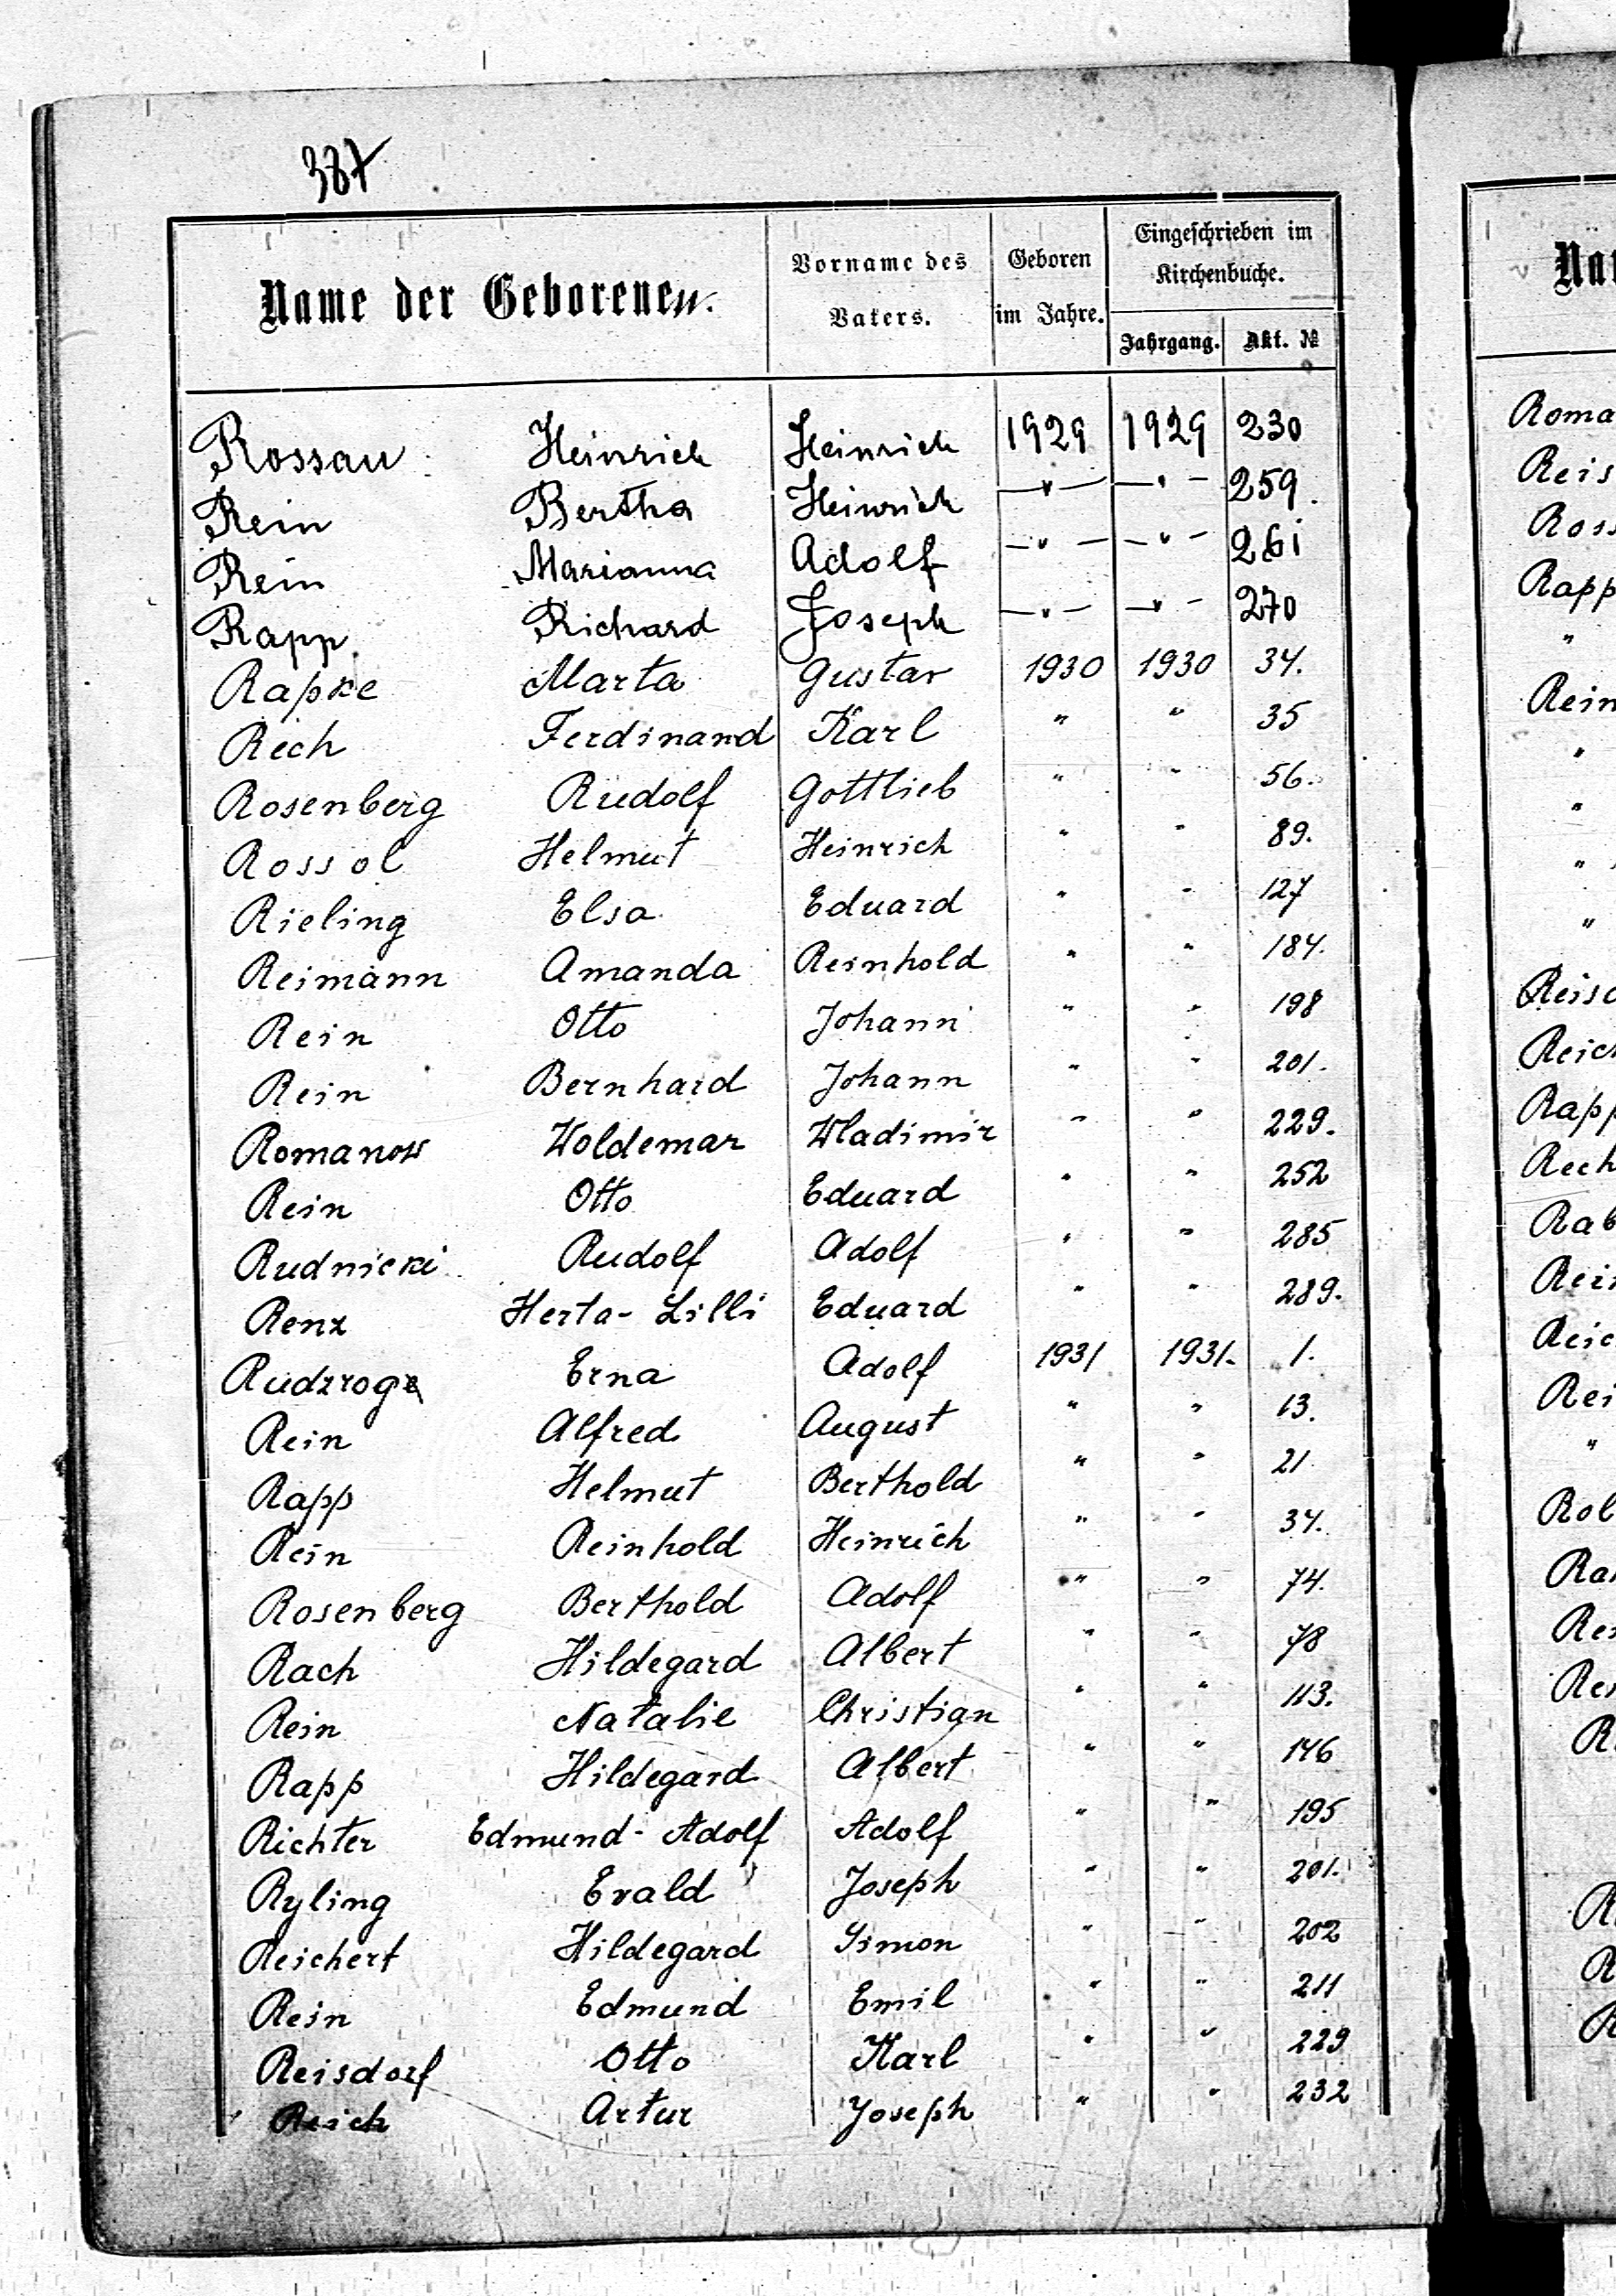 387
Name der Geborenen.
Vorname des Vaters.
Geboren im Jahre.
Eingeschrieben im Kirchenbuche.
Jahrgang. Akt. №
Rossau Heinrich Heinrich 1929 1929 230
Rein Bertha Heinrich —"— —"— 259.
Rein Marianna Adolf —"— —"— 261
Rapp. Richard Joseph —"— —"— 270
Rapke Marta Gustav 1930 1930 34.
Rech Ferdinand Karl " " 35
Rosenberg Rudolf Gottlieb " " 56.
Rossol Helmut Heinrich " " 89.
Rieling Elsa Eduard " " 127
Reimann Amanda Reinhold " " 184.
Rein Otto Johann " " 198
Rein Bernhard Johann " " 201.
Romanow Woldemar Wladimir " " 229.
Rein Otto Eduard " " 252
Rudnicki Rudolf Adolf " " 285
Renz Herta-Lilli Eduard " " 289.
Rudzroga Erna Adolf 1931 1931. 1.
Rein Alfred August " " 13.
Rapp Helmut Berthold " " 21
Rein Reinhold Heinrich " " 34.
Rosenberg Berthold Adolf " " 74.
Rach Hildegard Albert " " 78
Rein Natalie Christian " " 113.
Rapp Hildegard Albert " " 146
Richter Edmund-Adolf Adolf " " 195
Ryling Evald Joseph " " 201.
Reichert Hildegard Simon " " 202
Rein Edmund Emil " " 211
Reisdorf Otto Karl " " 229
Reich Artur Joseph " " 232